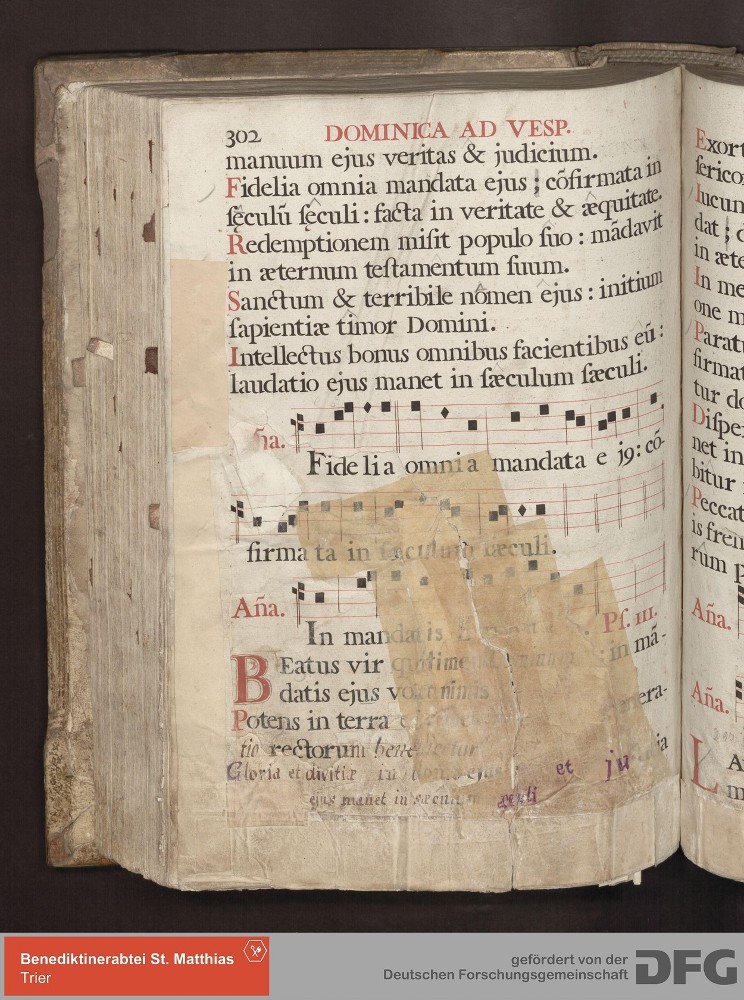 302 DOMINICA AD VESP.
manuum ejus veritas & judicium.
Fidelia omnia mandata ejus ; cõfirmata in
ſęculũ ſęculi : facta in veritate & æquitate.
Redemptionem miſit populo ſuo : mãdavit
in æternum teſtamentum ſuum.
Sanctum & terribile nomen ejus : initium
ſapientiæ timor Domini.
Intellectus bonus omnibus facientibus eũ :
laudatio ejus manet in ſæculum ſæculi.
ña.
Fide li a omnia mandata e jꝰ : cõ-
firma ta in ſæculum ſæculi.
Aña.
In mandatis
Pſ. III.
BEatus vir qui time : in mã-
datis ejus vo nimis
Potens in terra era-
tio rectorum bene
Gloria et divitiæ in domo ejus et ju
ejus manet in sæculum
Exort
ſerico
Iucun
dat ;
in æte
In me
one m
Parat
firmat
tur do
Diſpe
net in
bitur
Peccat
is fren
rum p
Aña.
Aña.
L A
m
Benediktinerabtei St. Matthias
Trier
gefördert von der
Deutschen Forschungsgemeinschaft
DFG